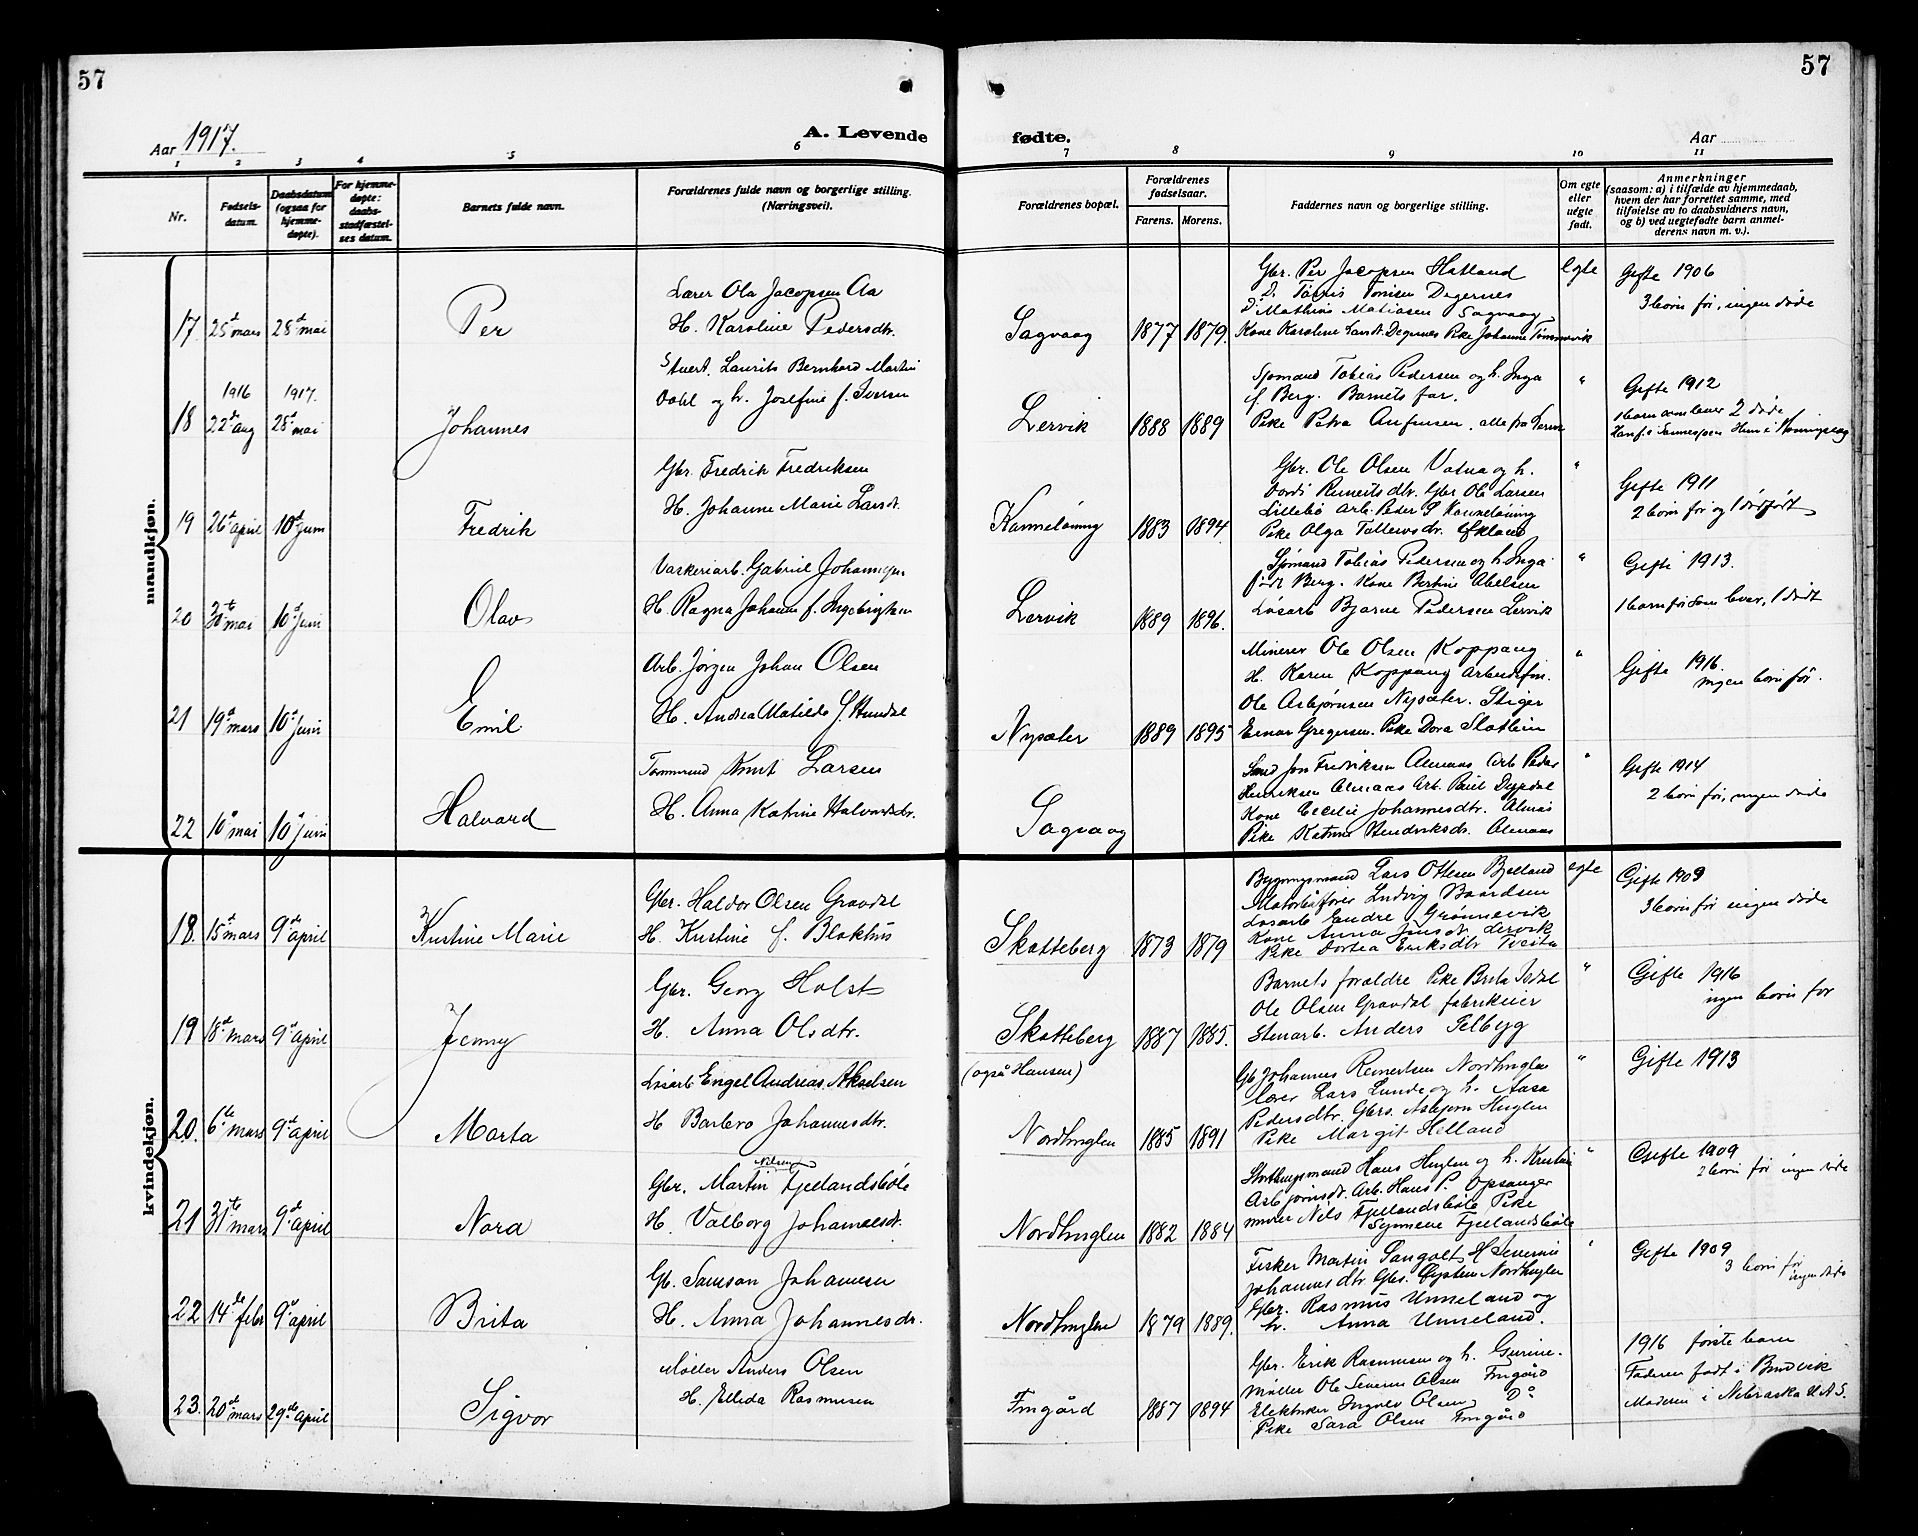 57
57
Aar 1917.
A. Levende
fødte.
Aar
1 2 3 4 5 6 7 8 9 10 11
Nr.
Fødsels-
datum.
Daabsdatum
(ogsaa for
hjemme-
døpte).
For hjemme-
døpte:
daabs-
stadfæstel-
ses datum.
Barnets fulde navn.
Forældrenes fulde navn og borgerlige stilling.
(Næringsvei).
Forældrenes bopæl.
Forældrenes
fødselsaar.
Farens. Morens.
Faddernes navn og borgerlige stilling.
Om egte
eller
uegte
født.
Anmerkninger
(saasom: a) i tilfælde av hjemmedaab,
hvem der har forrettet samme, med
tilføielse av to daabsvidners navn,
og b) ved uegtefødte barn anmel-
derens navn m. v.).
mandkjøn.
Lærer Ola Jacopsen Aa
H. Karoline Pedersdtr.
17. 25de mars 28de mai Per
Sagvaag 1877 1879.
Gbr. Per Jacopsen Hatland
Do Tønnis Tønisen Degernes
Do Mathias Matiasen Sagvaag
Kone Karoline Larsdt. Degernes Pike Johanne
egte
Gifte 1906
3 born før, ingen døde
Laurits Bernhard Martin
Dahl og h. Josefine f. Iversen
1916 1917.
18 22de aug 28de mai Johannes
Lervik 1888 1889
Sjømand Tobias Pedersen og h. Inga
f. Berg. Barnets far.
Pike Petra alle fra
"
Gifte 1912
1 barn som lever 2 døde
Gbr. Fredrik Fredriksen
H. Johanne Marie Larsdt.
19 26de april 10de Juni Fredrik
Kanneløning 1883 1894.
Gbr. Ole Olsen Vatna og h.
Gbr Ole Larsen
Lillebø Arb. Peder S Kanneløning
Pike Olga
"
Gifte 1911
2 born før og 1 dødfødt
Vaskeriarb. Gabriel Johannesen
H. Ragna Johanne f. Ingebrigtsen
20 30te mai 10de Juni Olav
Lervik 1889 1896.
Sjømand Tobias Pedersen og h. Inga
født Berg. Kone Bertine Abelsen
Løsarb Bjarne Pedersen Lervik
"
Gifte 1913.
1 barn før som lever, 1 dødt
Arb. Jørgen Johan Olsen
H. Andrea Matilde f.
21 19de mars 10de Juni Emil
Nysæter 1889 1895
Minerer Ole Olsen Koppang
H. Karen Koppang
Ole Asbjørnsen Nysæter. Stiger
Einar Gregersen. Pike Dora
"
Gifte 1916.
ingen born før.
Tømmermd Knut Larsen
H. Anna Katrine Halvardsdtr.
22 10de mai 10de Juni Halvard
Sagvaag
Smed Jon Fredriksen Almaas Arb Peder
Henriksen Almaas Arb. Paul Dypdal
Kone Cecilie Johannesdtr. Almås
Pike Katrine Hendriksdr. Almaas
"
Gifte 1914
2 born før, ingen døde
kvindekjøn.
Gbr. Haldor Olsen Gravdal
H. Kristine f. Blokhus
18. 15de mars 9de april Kristine Marie
Skatteberg 1873 1879
Bygningsmand Lars Ottesen Bjelland
Motorbåtfører Ludvig Baardsen
Løsarb Endre Grønnevik
Kone Anna Lervik
Pike Dortea Eriksdtr Tveita
egte
Gifte 1909
3 born før ingen døde
Gbr. Georg Holst
H. Anna Olsdtr.
19 18de mars 9de april Jenny
Skatteberg 1887 1885.
(også Hansen)
Barnets foraldre Pike Brita
Ole Olsen Gravdal fabrikeier
Stenarb. Anders Selbyg
"
Gifte 1916
ingen born før
Løsarb Engel Andreas Akselsen
H Barbro Johannesdtr.
20. 6te mars 9de april Marta
Nordhuglen 1885 1891
Gb Johannes Reinertsen Nordhuglen
lærer Lars Lunde og h. Aasa
Pedersdtr. Gbrs. Asbjørn Huglen
Pike Margit Helland
"
Gifte 1913
Nilsen
Gbr. Martin Fjellandsbøle
H. Valborg Johannesdt.
21 31te mars 9de april Nora
Nordhuglen 1882 1884
Stortingsmand Hans Huglen og h. Kristine
Asbjørnsdt. Arb. Hans P. Opsanger
murer Nils Fjellandsbøle Pike
Synneve Fjellandsbøle
"
Gifte 1909
2 born før ingen døde
Gb. Samson Johannesen
H. Anna Johannesdr.
22 14de febr 9de april Brita
Nordhuglen 1879 1889.
Fisker Martin Sangolt H Severine
Johannesdtr Gbr. Øystein Nordhuglen
Gbr. Rasmus Unneland og
h. Anna Unneland.
"
Gifte 1909
3 born før
ingen døde
Møller Anders Olsen
H. Ellida Rasmusen
23. 20de mars 29de april Sigvor
Fingård 1887 1894
Gbr. Erik Rasmusen og h. Gurine.
Møller Ole Severin Olsen Fingård
Elektriker Ingolv Olsen Do
Pike Sara Olsen Fingård
1916 første barn
Faderen født i Bredvik
Moderen i Nebraska U.A.S.